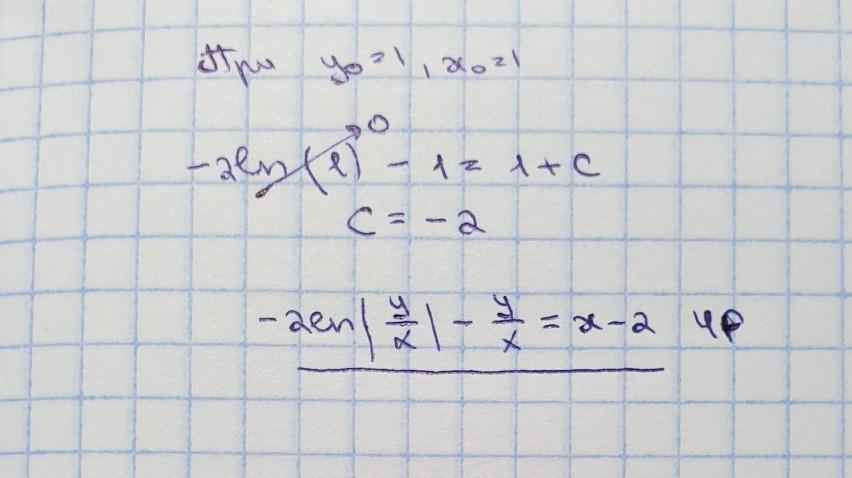 При y₀=1, x₀=1
0
-2ln(1) - 1 = 1 + C
C = -2
-2ln|y/x| - y/x = x - 2 ЧР